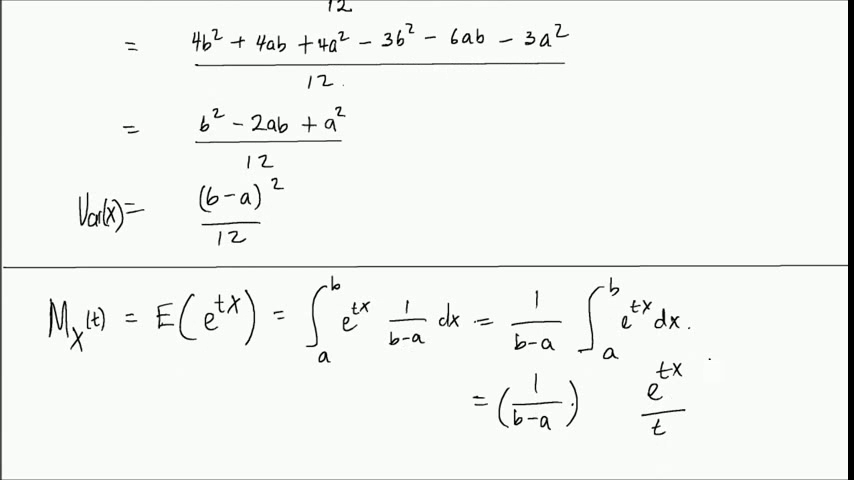 12
= 4b² + 4ab + 4a² - 3b² - 6ab - 3a² / 12.
= b² - 2ab + a² / 12
Var(x) = (b-a)² / 12
M_X(t) = E(e^{tX}) = ∫_a^b e^{tx} 1/(b-a) dx = 1/(b-a) ∫_a^b e^{tx} dx.
= (1/(b-a)) e^{tx}/t